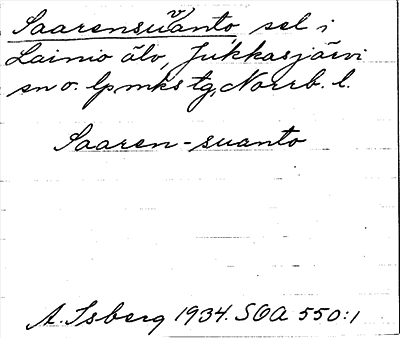 Saarensu(v)anto sel i
Lainio älv, Jukkasjärvi
sn o. lpmks tg, Norrb. l.
Saaren-suanto
A. Isberg 1934. SOA 550:1